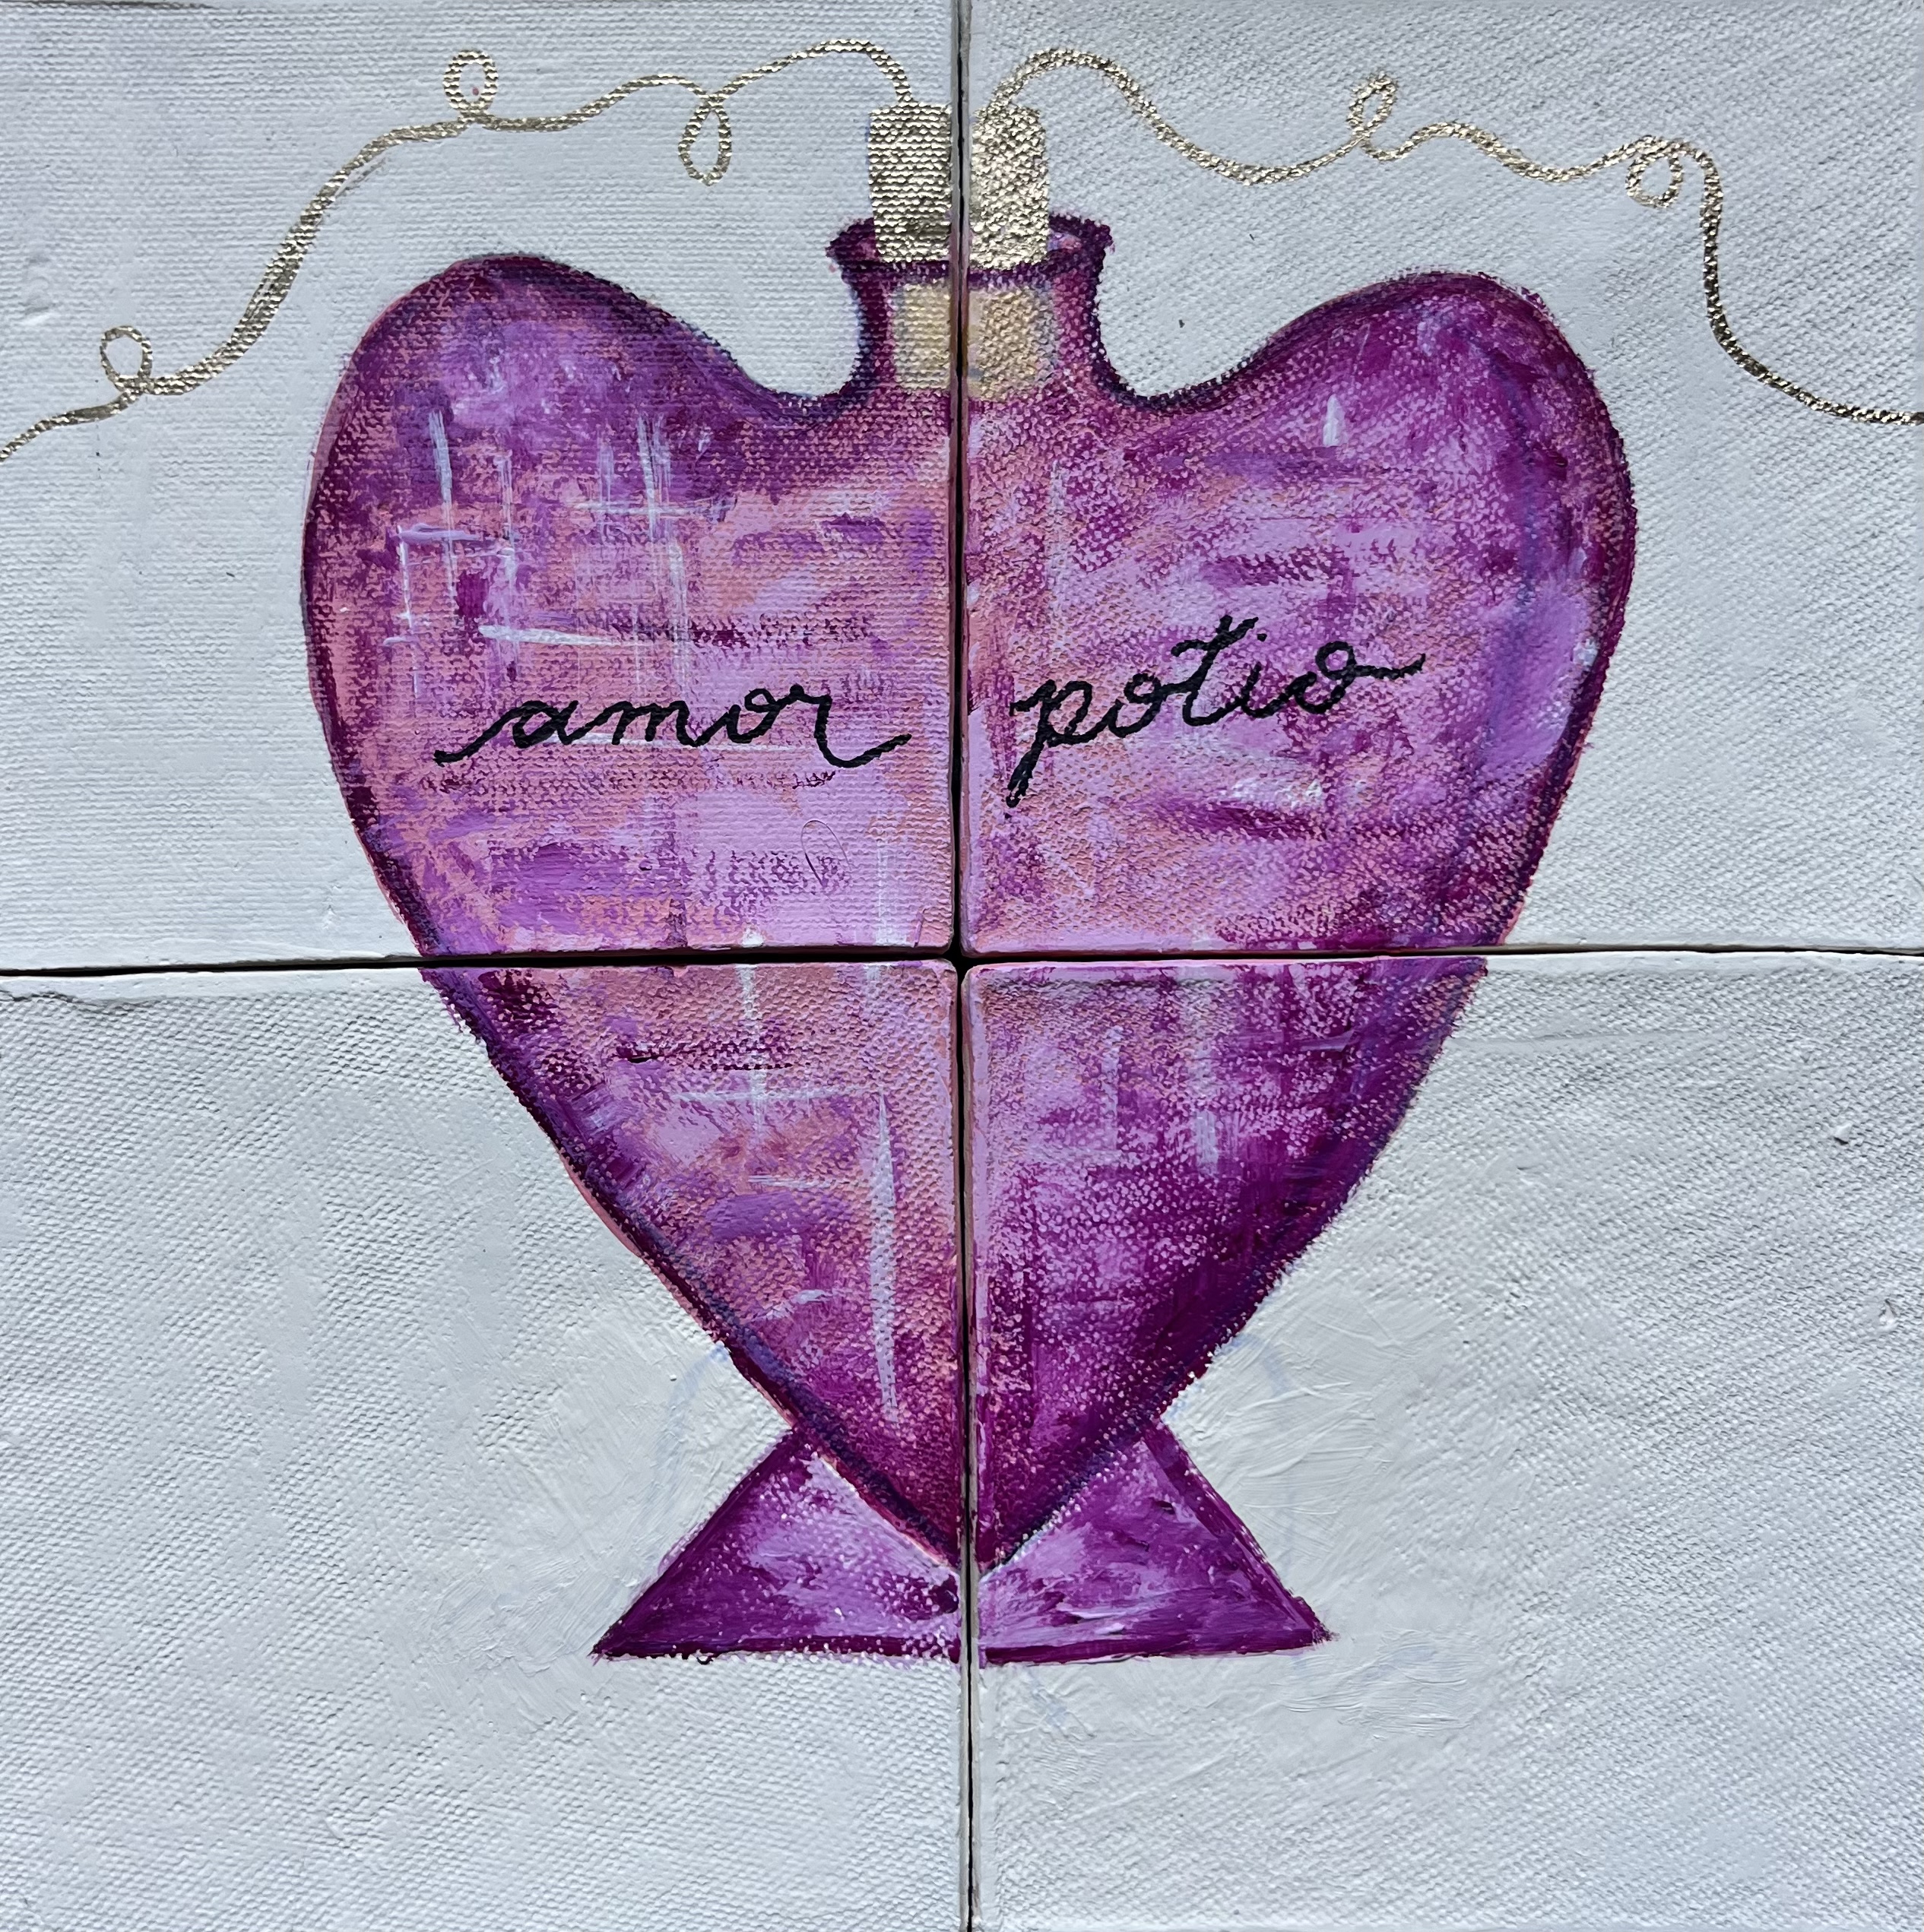 amor potio